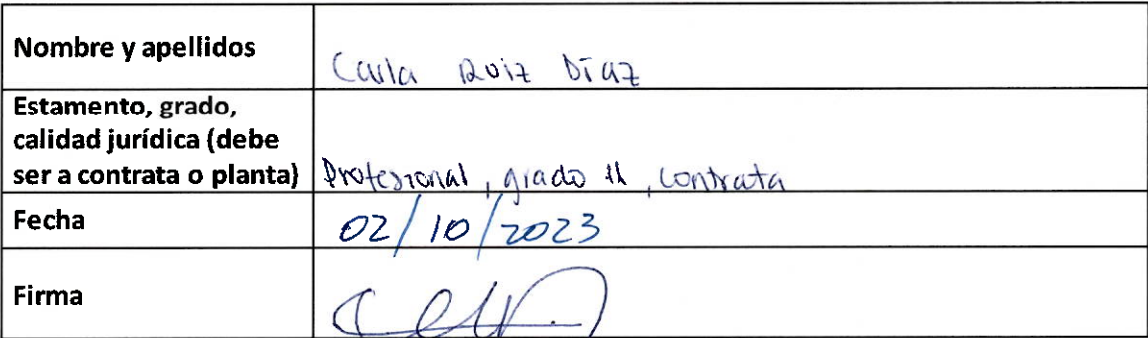 Nombre y apellidos
Carla Ruiz Díaz
Estamento, grado,
calidad jurídica (debe
ser a contrata o planta)
Profesional, grado 11, contrata
Fecha
02/10/2023
Firma